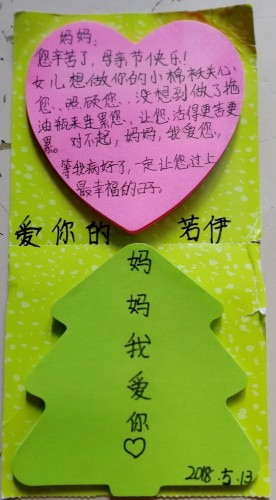 妈妈：
您辛苦了，母亲节快乐！
女儿想做你的小棉袄关心
您、照顾您、没想到做了拖
油瓶来生累您、让您活得更苦更
累。对不起，妈妈，我爱您，
等我病好了，一定让您过上
最幸福的日子。
爱你的 若伊
妈
妈
我
爱
你♡
2018.5.13